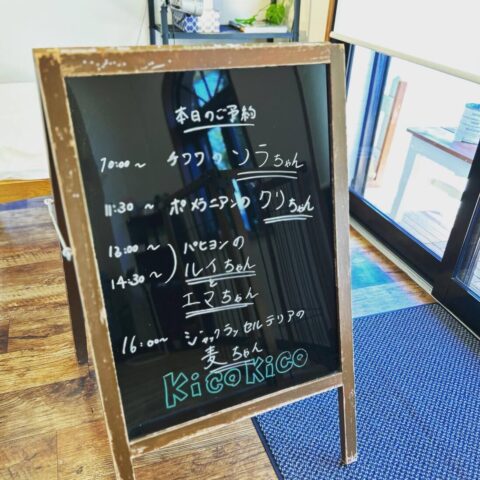 本日のご予約
10:00～ チワワの ソラちゃん
11:30～ ポメラニアンの クリちゃん
13:00～ パピヨンの
14:30～ ルイちゃん
と
エマちゃん
16:00～ ジャックラッセルテリアの
麦ちゃん
KicoKico